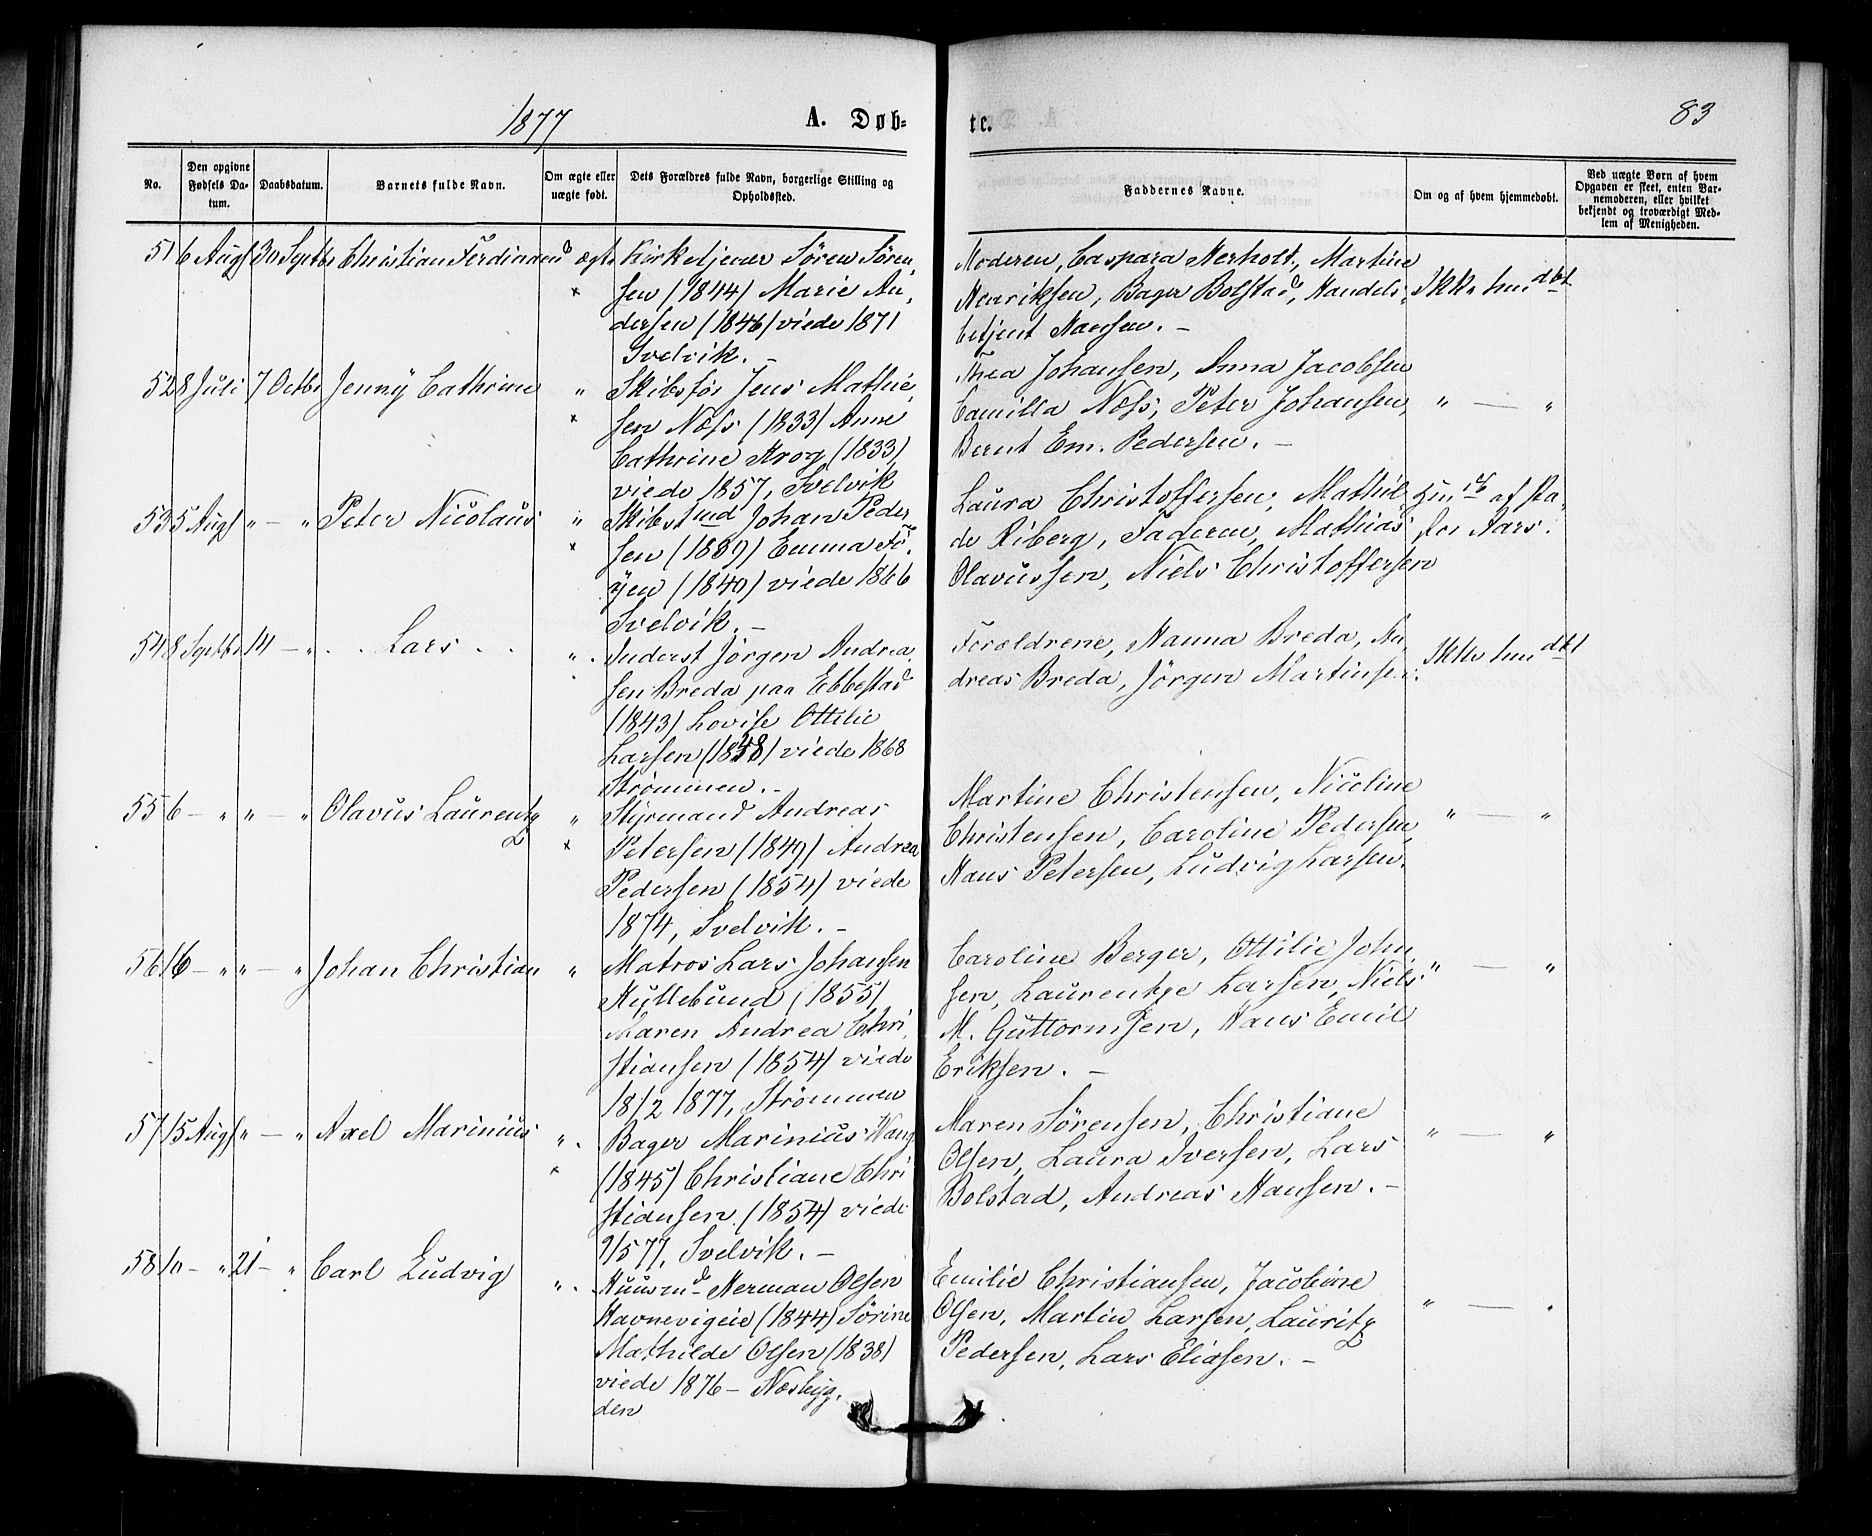 1877
A. Døb-
te.
83
No.
Den opgivne Fødsels Datum.
Daabsdatum.
Barnets fulde Navn.
Om ægte eller uægte født.
Dets Forældres fulde Navn, borgerlige Stilling og Opholdssted.
Faddernes Navne.
Om og af hvem hjemmedøbt.
Ved uægte Børn af hvem Opgaven er skeet, enten Barnemoderen, eller hvilket bekjendt og troværdigt Medlem af Menigheden.
51 6 Aug 30 Septbr Christian Ferdinand ægte Kirketjener Søren Søren-
sen (1844) Marie An-
dersen (1846) viede 1871
Svelvik. –
Moderen, Caspara Nerholt, Martine
Henriksen, Bager Bolstad, Handels-
betjent Hansen. –
Ikke hmdbt
52 8 Juli 7 Octbr Jenny Cathrine " Skibsfør Jens Mathie-
sen Næss (1833) Anne
Cathrine Krog (1833)
viede 1857, Svelvik
Thea Johansen, Anna Jacobsen
Camilla Næss, Peter Johansen,
Bernt Em. Pedersen. –
" — "
53 5 Aug " — " Peter Nicolaus " Skibstmd Johan Peder
sen (1839) Emma Fö-
yen (1840) viede 1866
Svelvik. –
Laura Christoffersen, Mathil-
de Riberg, Faderen, Mathias
Olavussen, Niels Christoffersen
af Pa-
stor Aars.
54 8 Septbr 14 — " Lars " Inderst Jørgen Andrea-
sen Breda paa Ebbestad
(1843) Lovise Ottilie
Larsen (1848) viede 1868
Strømmen. –
Forældrene, Hanna Breda, An-
dreas Breda, Jørgen Martinsen.
Ikke hmdbt
55 6 — " " — " Olavus Laurentz " Styrmand Andreas
Petersen (1849) Andrea
Pedersen (1854) viede
1874, Svelvik. –
Martine Christensen, Nicoline
Christensen, Caroline Pedersen,
Hans Petersen, Ludvig Larsen.
" — "
56 16 — " " — " Johan Christian " Matros Lars Johansen
Hullebund (1855)
Maren Andrea Chri-
stiansen (1854) viede
18/2 1877, Strømmen
Caroline Berger, Ottilie John-
sen, Laurentze Larsen, Niels
M. Guttormsen, Hans Emil
Eriksen. –
" — "
57 15 Aug " — " Axel Marinius " Bager Marinius Wang
(1845) Christiane Chri
stiansen (1854) viede
9/5 77, Svelvik. –
Maren Sørensen, Christiane
Olsen, Laura Iversen, Lars
Bolstad, Andreas Hansen. –
" — "
58 10 — " 21 — " Carl Ludvig " Huusmd Herman Olsen
Havnevigeie (1844) Sørine
Mathilde Olsen (1838)
viede 1876 – Nesbyg-
den
Emilie Christiansen, Jacobine
Olsen, Martin Larsen, Lauritz
Pedersen, Lars Eliasen. –
" — "